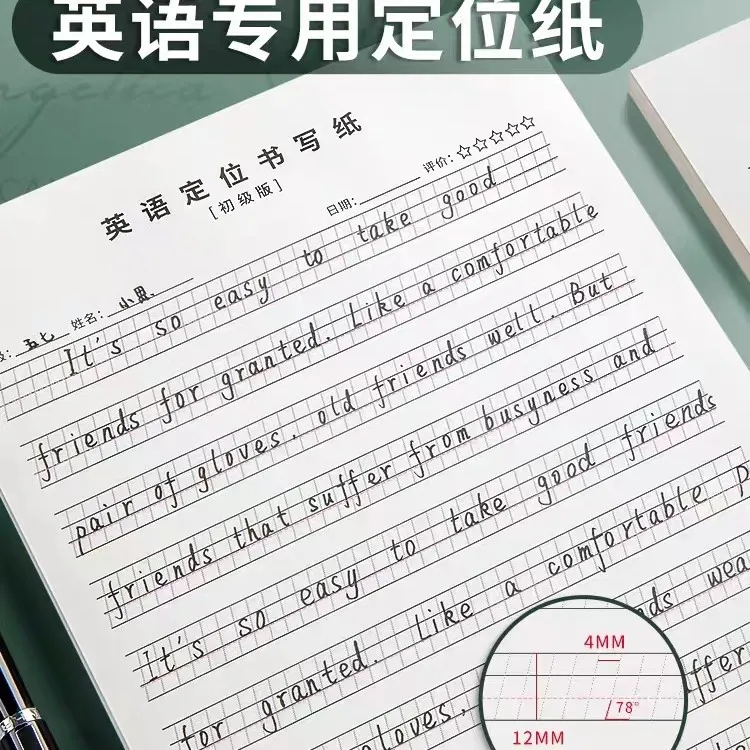 英语专用定位纸
英语定位书写纸
[初级版]
日期:
评价:☆☆☆☆☆
五七 姓名:
It's so easy to take good
friends for granted. Like a comfortable
pair of gloves. old friends well. But
friends that suffer from busyness and
It's so easy to take good friends
for granted. Like a comfortable
gloves.
4MM
78°
12MM